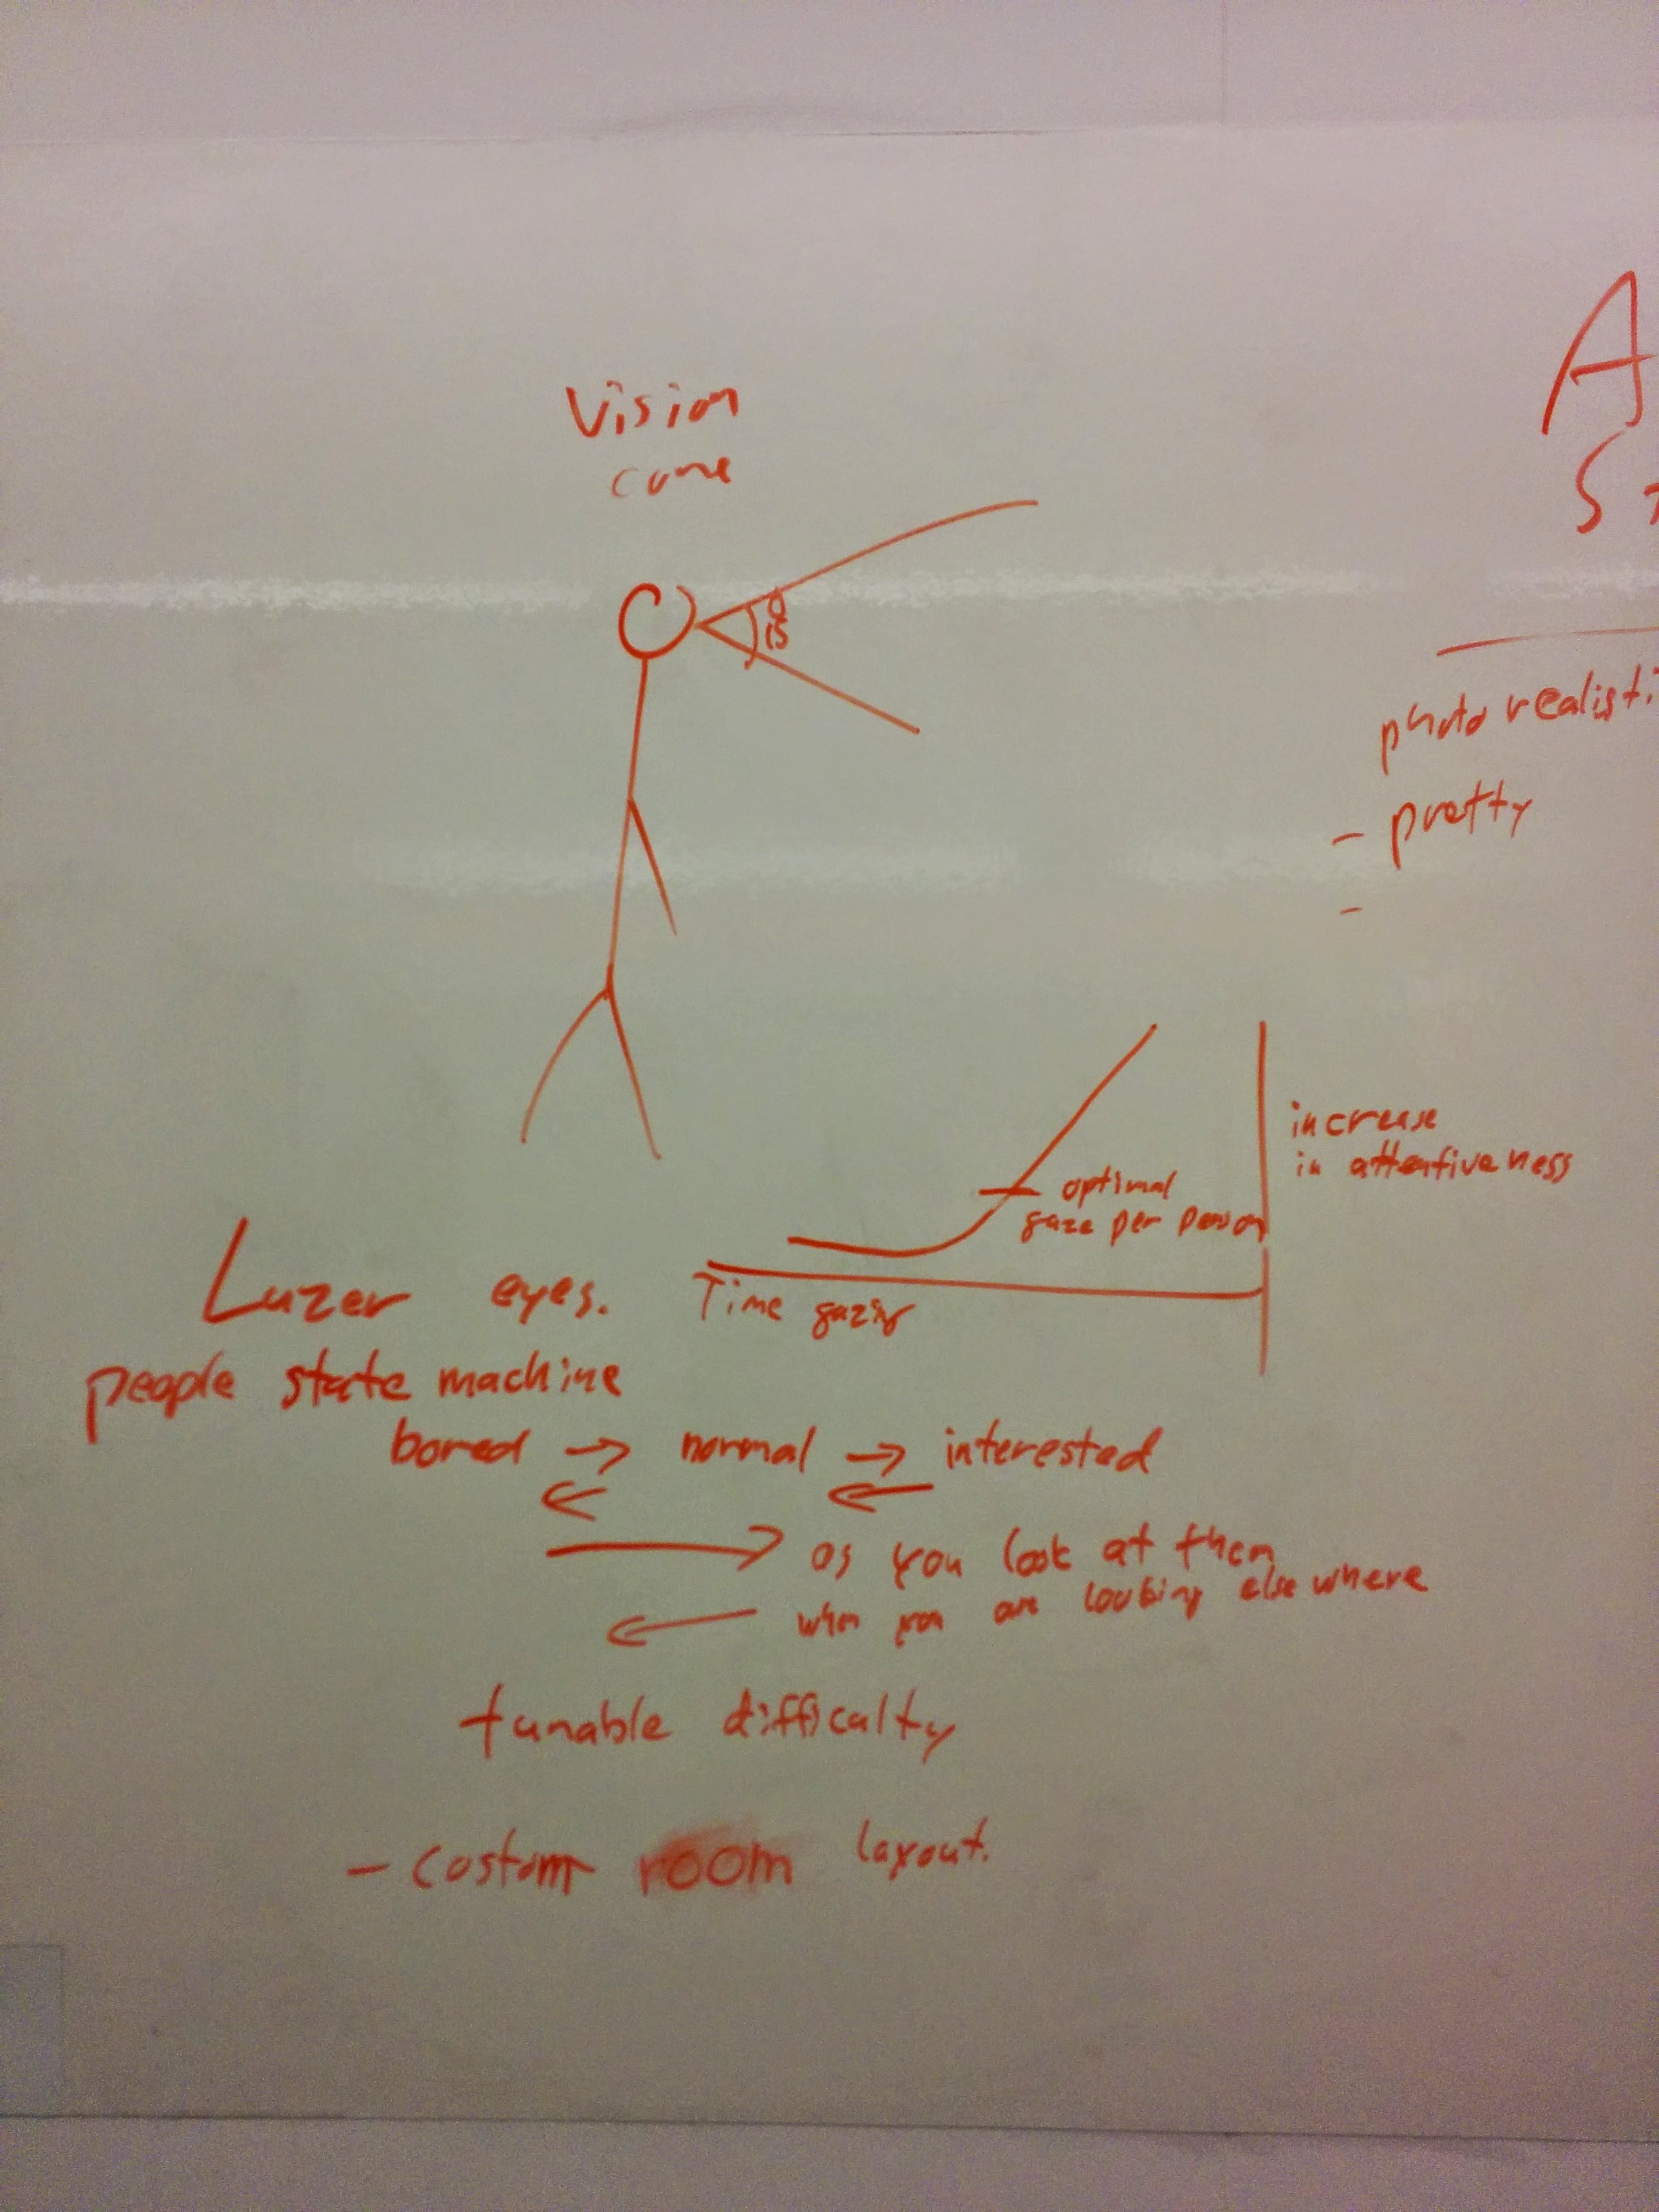 Vision
cone
15°
A
photo realisti
- pretty
-
increase
in attentiveness
optimal
gaze per person
Time gazing
Lazer eyes.
people state machine
bored → normal → interested
← ←
→ as you look at them
← when you are looking elsewhere
tunable difficulty
- costom room layout.